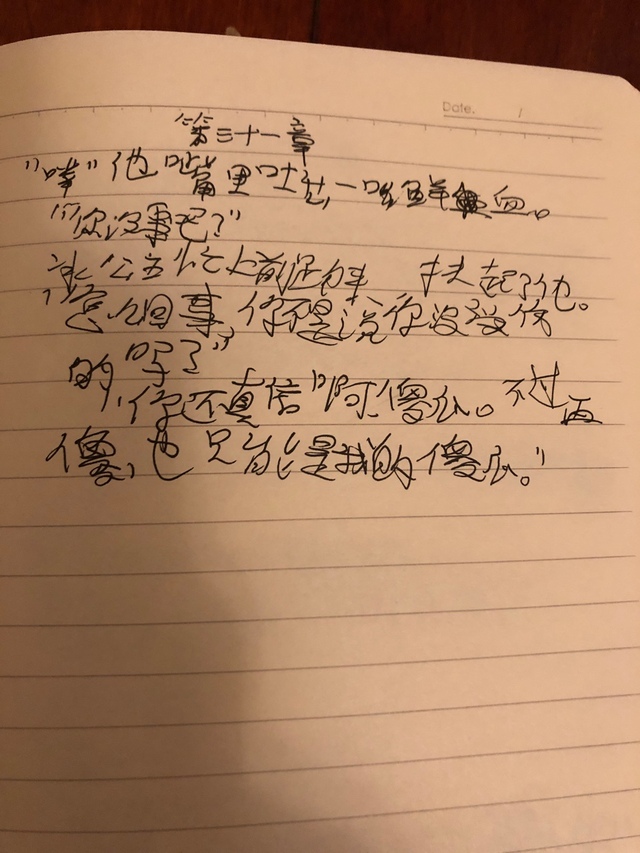 Date. /
第三十一章
"哇"他嘴里吐出一口鲜血。
"你没事吧？"
公主忙上前 扶起了他。
"怎么回事，你不是说你没受伤
的吗？"
"你还真信啊，傻瓜。不过再
傻，也只能是我的傻瓜。"